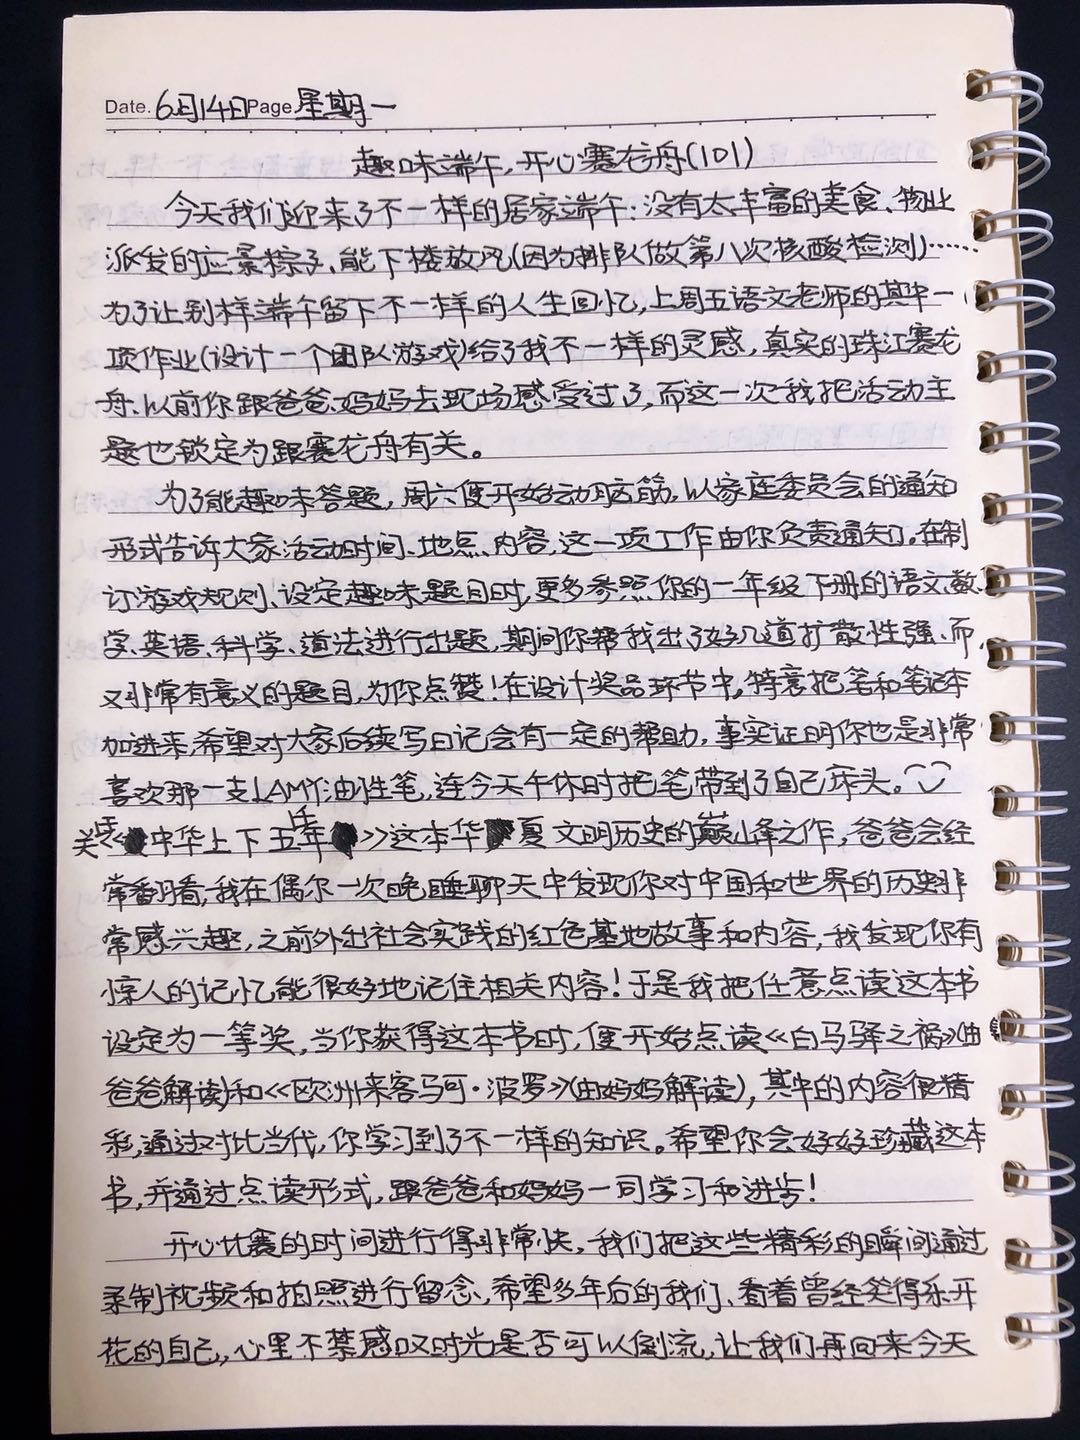 Date. 6月14日Page 星期一
趣味端午,开心赛龙舟(101)
今天我们迎来了不一样的居家端午:没有太丰富的美食、物业
派发的应景粽子、能下楼放风(因为排队做第八次核酸检测)……
为了让别样端午留下不一样的人生回忆,上周五语文老师的其中一
项作业(设计一个团队游戏)给了我不一样的灵感,真实的珠江赛龙
舟、以前你跟爸爸、妈妈去现场感受过了,而这一次我把活动主
题也锁定为跟赛龙舟有关。
为了能趣味答题,周六便开始动脑筋,以家庭委员会的通知
形式告诉大家活动时间、地点、内容,这一项工作由你负责通知。在制
订游戏规则、设定趣味题目时,更多参照你的一年级下册的语文、数
学、英语、科学、道法进行出题,期间你帮我出了好几道扩散性强、而
又非常有意义的题目,为你点赞!在设计奖品环节中,特意把笔和笔记本
加进来,希望对大家后续写日记会有一定的帮助,事实证明你也是非常
喜欢那一支LAMY油性笔,连今天午休时把笔带到了自己床头。
关于《中华上下五千年》这本华夏文明历史的巅峰之作,爸爸会经
常翻看,我在偶尔一次晚睡聊天中发现你对中国和世界的历史非
常感兴趣,之前外出社会实践的红色基地故事和内容,我发现你有
惊人的记忆能很好地记住相关内容!于是我把任意点读这本书
设定为一等奖,当你获得这本书时,便开始点读《白马驿之祸》(由
爸爸解读)和《欧洲来客马可·波罗》(由妈妈解读),其中的内容很精
彩,通过对比当代,你学习到了不一样的知识。希望你会好好珍藏这本
书,并通过点读形式,跟爸爸和妈妈一同学习和进步!
开心比赛的时间进行得非常快,我们把这些精彩的瞬间通过
录制视频和拍照进行留念,希望多年后的我们、看着曾经笑得乐开
花的自己,心里不禁感叹时光是否可以倒流,让我们再回来今天